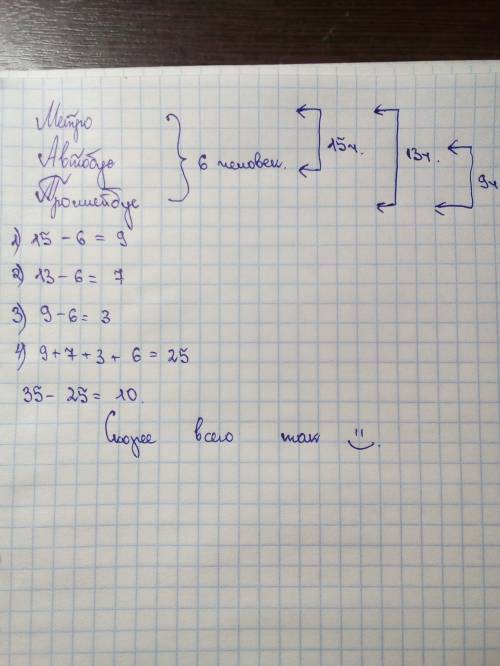 Метро
Автобус
Троллейбус
6 человек.
15ч.
13ч.
9ч
1) 15 - 6 = 9
2) 13 - 6 = 7
3) 9 - 6 = 3
4) 9 + 7 + 3 + 6 = 25
35 - 25 = 10.
Скорее всего так